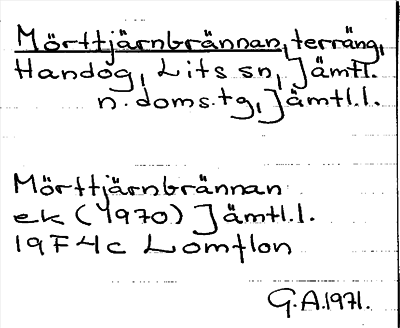 Mörttjärnbrännan, terräng,
Handog, Lits sn, Jämtl.
n. doms.tg, Jämtl.l.
Mörttjärnbrännan
ek (1970) Jämtl.l.
19F4c Lomtlon
G.A.1971.